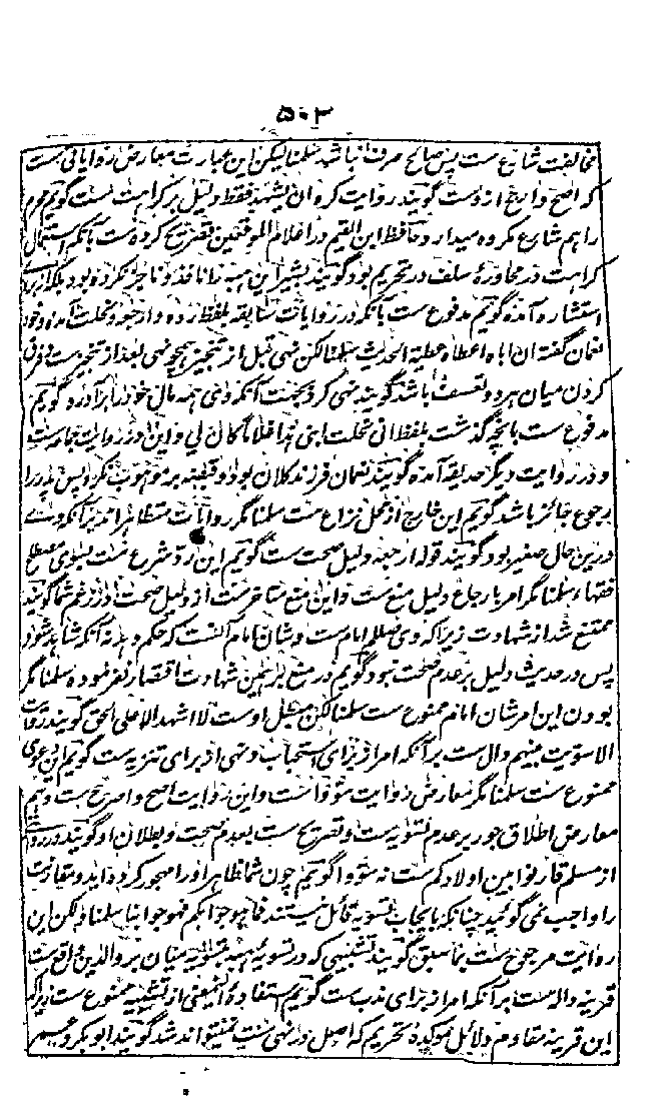 ۵۰۳
مخالفت شارع ست پس صالح صرف نباشد سلمنا لیکن این عبارت معارض روایاتی ست
که اصح و ارجح ازوست گویند روایت کردن لیشهد فقط دلیل بر کراهت ست گویم حرام
را هم شارع مکروه میدارد و حافظ ابن القیم در اعلام الموقعین تصریح کرده ست بآنکه استعمال
کراهت در محاورهٔ سلف در تحریم بود گویند بشیر این هبه را نافذ و ناجز نکرده بود بلکه از برای
استشاره آمده گویم مدفوع ست بآنکه در روایات سابقه بلفظ رده و ارجعه و نحلت آمده و خود
نعمان گفته ان اباه اعطاه عطیة الحدیث سلمنا لکن نهی قبل از تنجیز همچو نهی بعد از تنجیز ست و فرق
کردن میان هر دو تعسف باشد گویند نهی کرد بجهت آنکه وی همه مال خود را برآورده گویم
مدفوع ست بانچه گذشت بلفظ انی نحلت ابنی هذا غلاما کان لی و این در روایت جماعه ست
و در روایت دیگر حدیقه آمده گویند نعمان فرزند کلان بود و قبضه بر موهوب نکرد پس پدر را
رجوع جائز باشد گویم این خارج از محل نزاع ست سلمنا مگر روایات متظاهر اند بر آنکه وی
درین حال صغیر بود گویند قوله ارجعه دلیل صحت ست گویم این رد شرع ست بسوی مصطلح
فقهاء سلمنا مگر امر بارجاع دلیل منع ست و این منع متاخر ست از دلیل صحت در زعم شما گویند
ممتنع شد از شهادت زیرا که وی صلعم امام ست و شان امام آنست که حکم دهد نه آنکه شاهد شود
پس در حدیث دلیل بر عدم صحت نبود گویم در منع بر همین شهادت اقتصار نفرموده سلمنا مگر
بودن این امر شان امام ممنوع ست سلمنا لکن مبطل اوست لا اشهد الا علی الحق گویند روایت
الا سویت بینهم دال ست بر آنکه امر از برای استحباب و نهی از برای تنزیه ست گویم این دعوی
ممنوع ست سلمنا مگر معارض روایت سووا ست و این روایت اصح و اصرح ست و هم
معارض اطلاق جور بر عدم تسویه ست و تصریح ست بعدم صحت و بطلان او گویند در روایتی
از مسلم قاربوا بین اولادکم ست نه سووا گویم چون شما ظاهر او را مهجور کرده اید و مقاربت
را واجب نمی گوئید چنانکه بایجاب تسویه قائل نیستند فما هو جوابکم فهو جوابنا سلمنا ولکن این
روایت مرجوح ست بما سبق گویند تشبیهی که در تسویهٔ هبه بتسویه میان بر والدین واقع ست
قرینه داله ست بر آنکه امر از برای ندب ست گویم استفادهٔ اینمعنی از تشبیه ممنوع ست زیرا که
این قرینه مقاوم دلائل موکدهٔ تحریم که اصل در نهی ست نمیتواند شد گویند ابو بکر و عمر